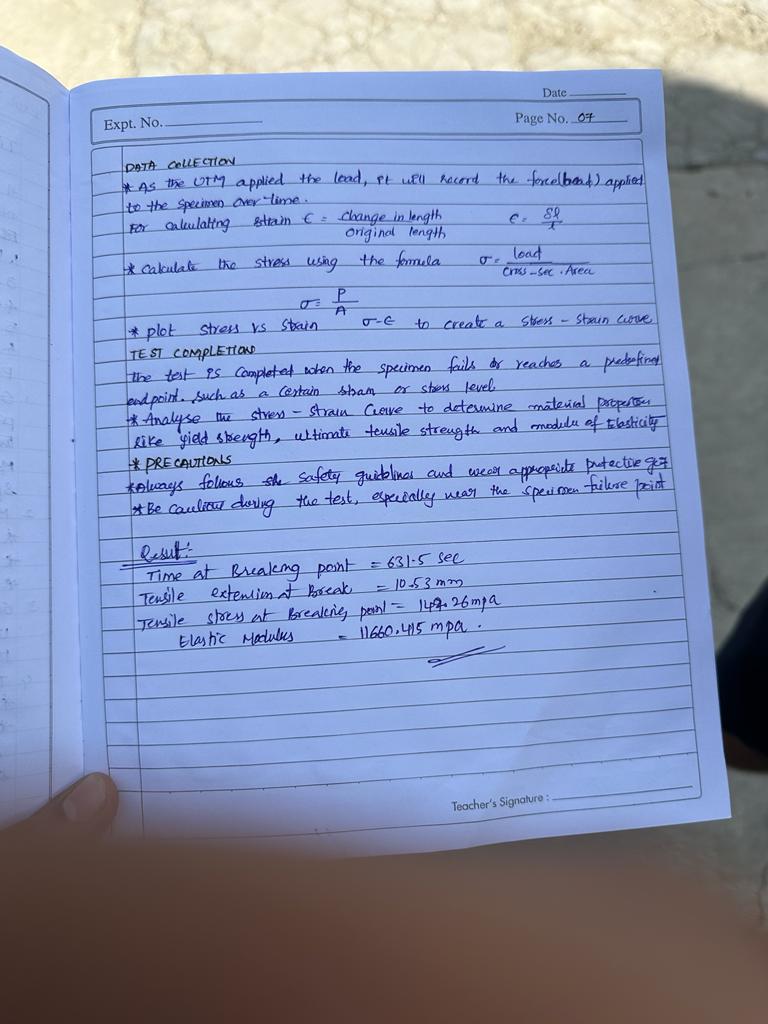 Date
Expt. No.
Page No. 07
DATA COLLECTION
* As the UTM applied the load, it will record the force(load) applied
to the specimen over time.
For calculating strain ϵ = change in length / original length   ϵ = δl/l
* Calculate the stress using the formula   σ = load / cross-sec. Area
σ = P/A
* plot stress vs strain   σ-ϵ to create a stress - strain curve
TEST COMPLETION
the test is completed when the specimen fails or reaches a predefined
endpoint. such as a certain strain or stress level
* Analyse the stress - strain curve to determine material properties
like yield strength, ultimate tensile strength and module of Elasticity
* PRECAUTIONS
* Always follows the safety guidelines and wear appropriate protective
* Be cautious during the test, especially near the specimen failure point
Result:-
Time at Breaking point = 631.5 sec
Tensile extension at Break = 10.53 mm
Tensile stress at Breaking point = mpa
Elastic Modulus = 11660.415 mpa.
Teacher's Signature :